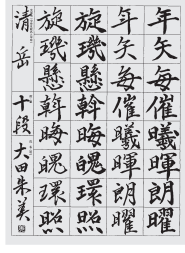 年矢毎催曦暉朗曜
年矢毎催曦暉朗曜
旋璣懸斡晦魄環照
旋璣懸斡晦魄環照
清岳 十段 大田朱美